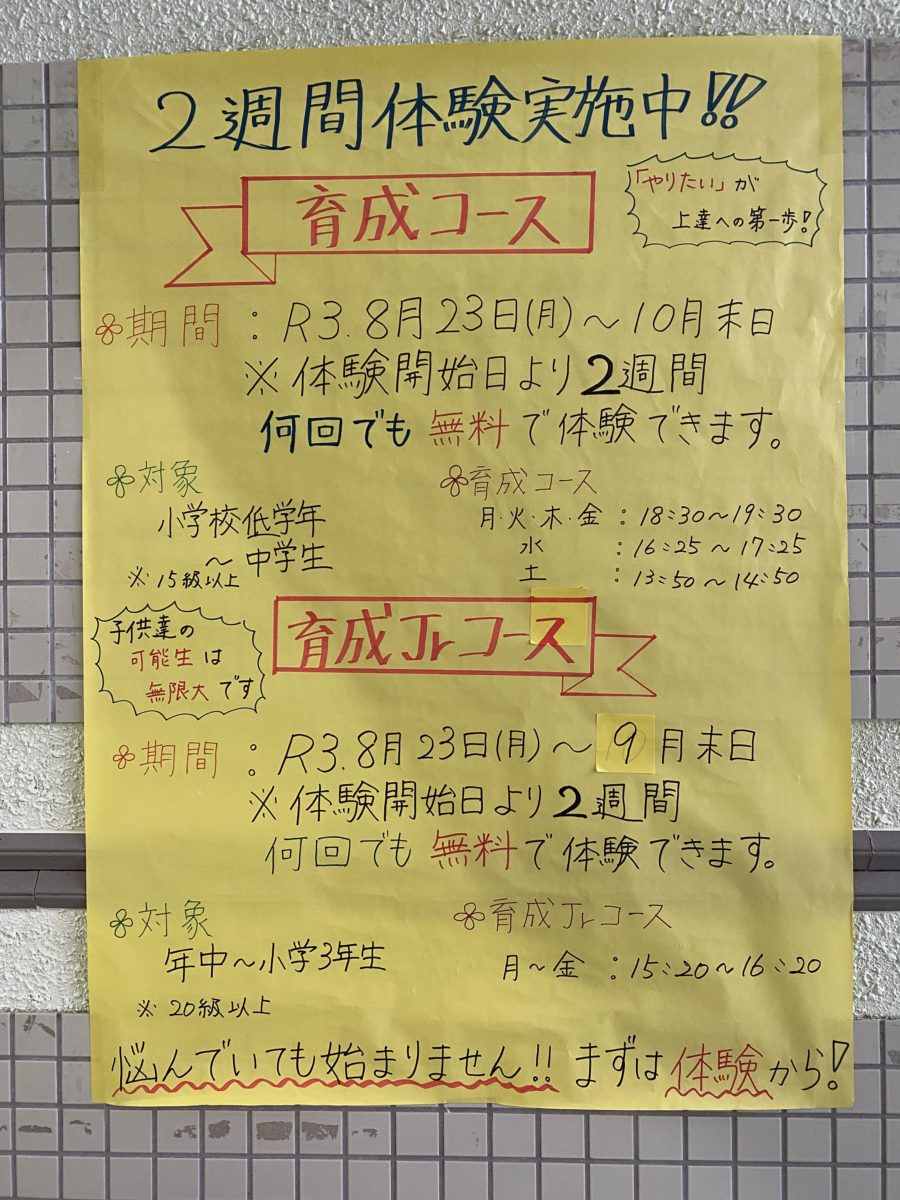 2週間体験実施中!!
育成コース
「やりたい」が
上達への第一歩!
期間 : R3.8月23日(月)～10月末日
※体験開始日より2週間
何回でも無料で体験できます。
対象
小学校低学年
～中学生
※15級以上
育成コース
月・火・木・金 : 18:30～19:30
水 : 16:25～17:25
土 : 13:50～14:50
育成Jrコース
子供達の
可能生は
無限大です
期間 : R3.8月23日(月)～9月末日
※体験開始日より2週間
何回でも無料で体験できます。
対象
年中～小学3年生
※20級以上
育成Jrコース
月～金 : 15:20～16:20
悩んでいても始まりません!! まずは体験から!